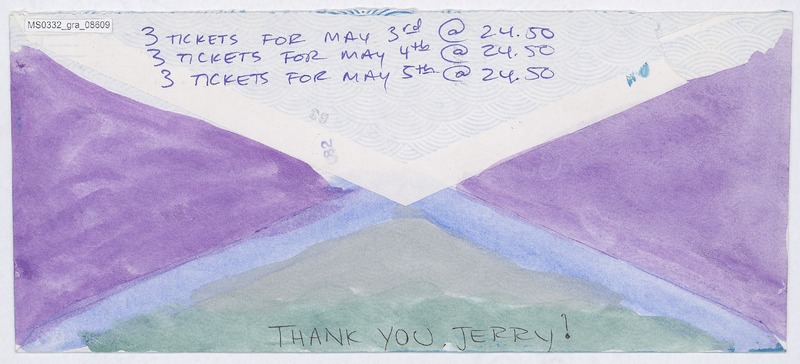 MS0332_gra_08609
3 TICKETS FOR MAY 3rd @ 24.50
3 TICKETS FOR MAY 4th @ 24.50
3 TICKETS FOR MAY 5th @ 24.50
82
THANK YOU JERRY!